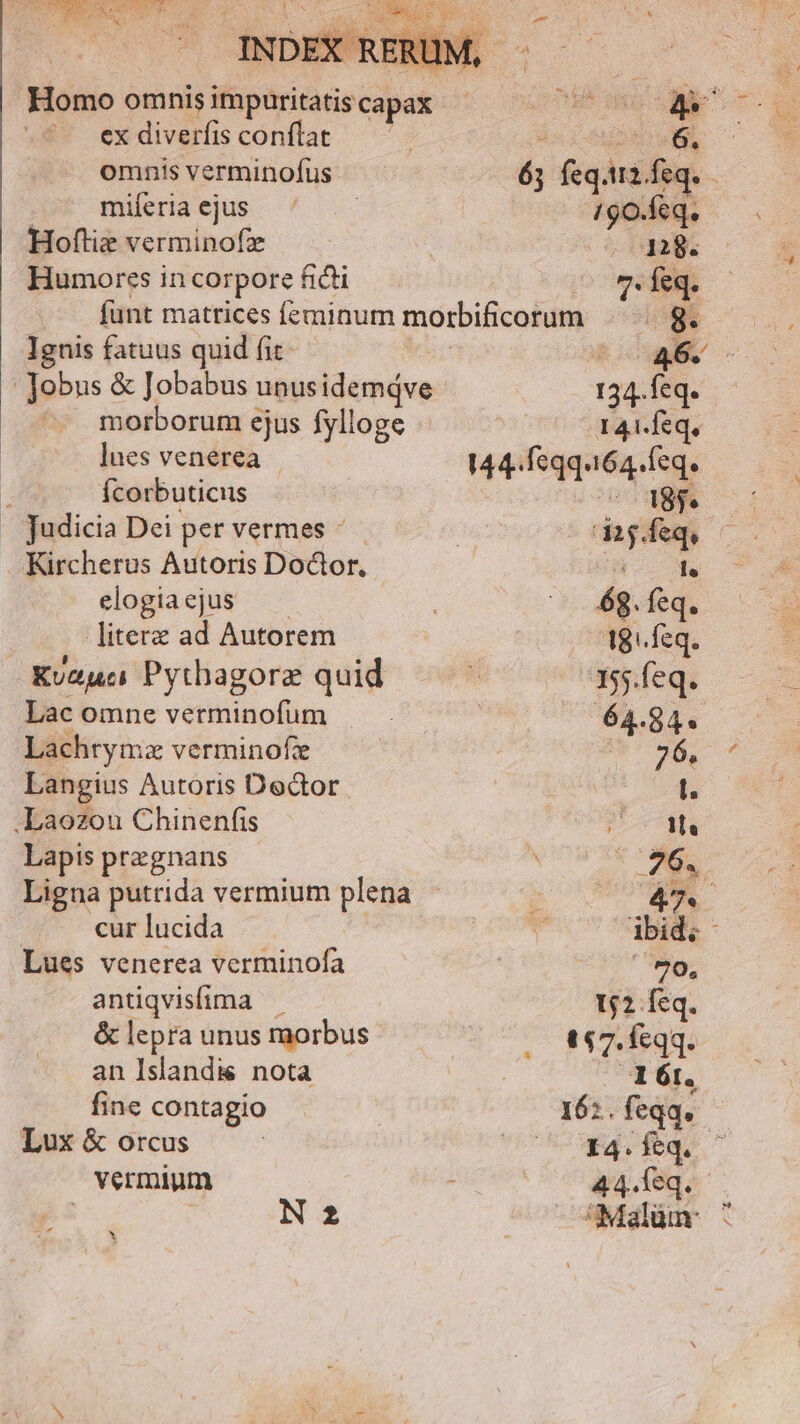 INDEX RERUM,
Homo omnis impuritatis capax 4.
ex diverſis conſtat 6.
omnis verminoſus 63 ſeq.112.ſeq.
miſeria ejus 190.ſeq.
Hoſtiæ verminoſæ 128.
Humores in corpore ficti 7. ſeq.
ſunt matrices ſeminum morbificorum 8.
Ignis fatuus quid ſit 46.
Jobus & Jobabus unus idemqve 134.ſeq.
morborum ejus ſylloge 141.ſeq.
lues venerea 144.ſeqq.164.ſeq.
ſcorbuticus 185.
Judicia Dei per vermes 125.ſeq.
Kircherus Autoris Doctor, 1.
elogia ejus 68. ſeq.
literæ ad Autorem 181.ſeq.
Κύαμοι Pythagoræ quid 155.ſeq.
Lac omne verminoſum 64.84.
Lachrymæ verminoſæ 76.
Langius Autoris Doctor 1.
Laozou Chinenſis 11.
Lapis prægnans 76.
Ligna putrida vermium plena 47.
cur lucida ibid.
Lues venerea verminoſa 70.
antiqvisſima 152 ſeq.
& lepra unus morbus 157.ſeqq.
an Islandis nota 161.
ſine contagio 162. ſeqq.
Lux & orcus 14. ſeq.
vermium 44.ſeq.
N 2 Malùm